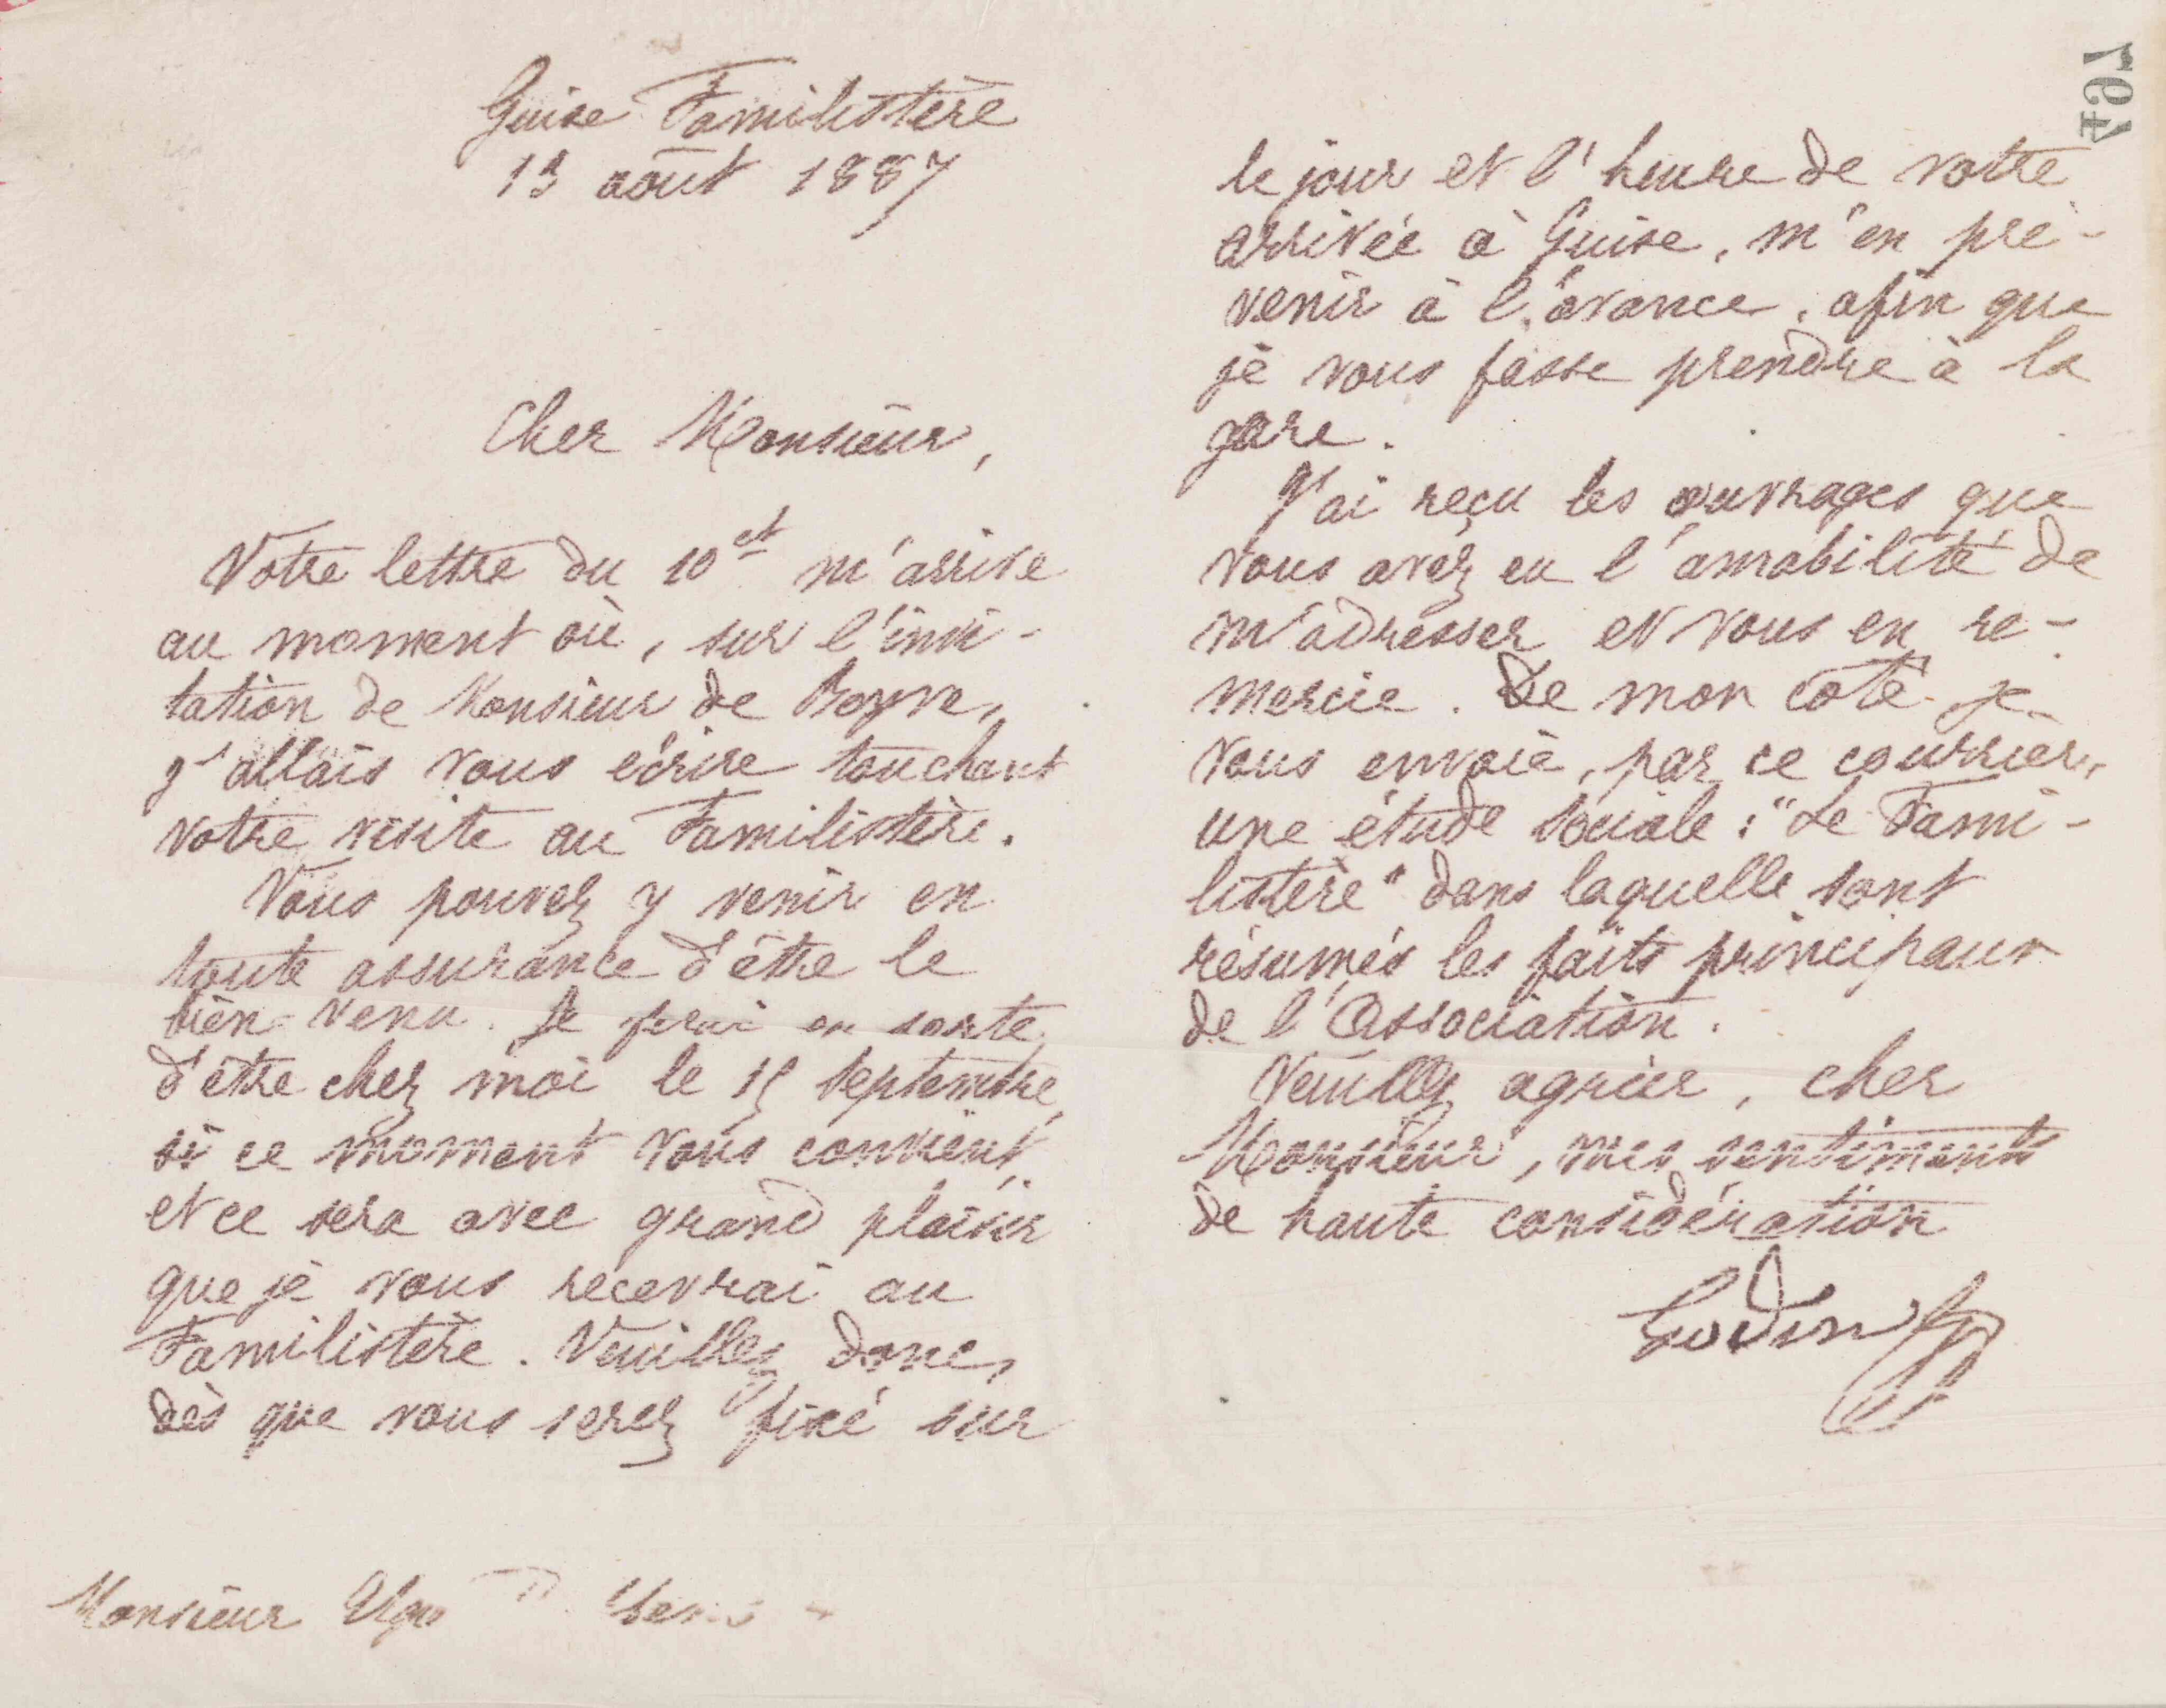 Guise Familistère
13 août 1887
Cher Monsieur,
Votre lettre du 10 ct m'arrive
au moment où, sur l'invi-
tation de Monsieur de Boyve,
j'allais vous écrire touchant
votre visite au Familistère.
Vous pouvez y venir en
toute assurance d'être le
bien-venu. Je ferai en sorte
d'être chez moi le 15 septembre,
si ce moment vous convient,
et ce sera avec grand plaisir
que je vous recevrai au
Familistère. Veuillez donc,
dès que vous serez fixé sur
Monsieur Ugo
le jour et l'heure de votre
arrivée à Guise, m'en pré-
venir à l'avance, afin que
je vous fasse prendre à la
gare.
J'ai reçu les ouvrages que
vous avez eu l'amabilité de
m'adresser et vous en re-
mercie. De mon côté je
vous envoie, par ce courrier,
une étude sociale : "Le Fami-
listère" dans laquelle sont
résumés les faits principaux
de l'Association.
Veuillez agréer, cher
Monsieur, mes sentiments
de haute considération
Godin